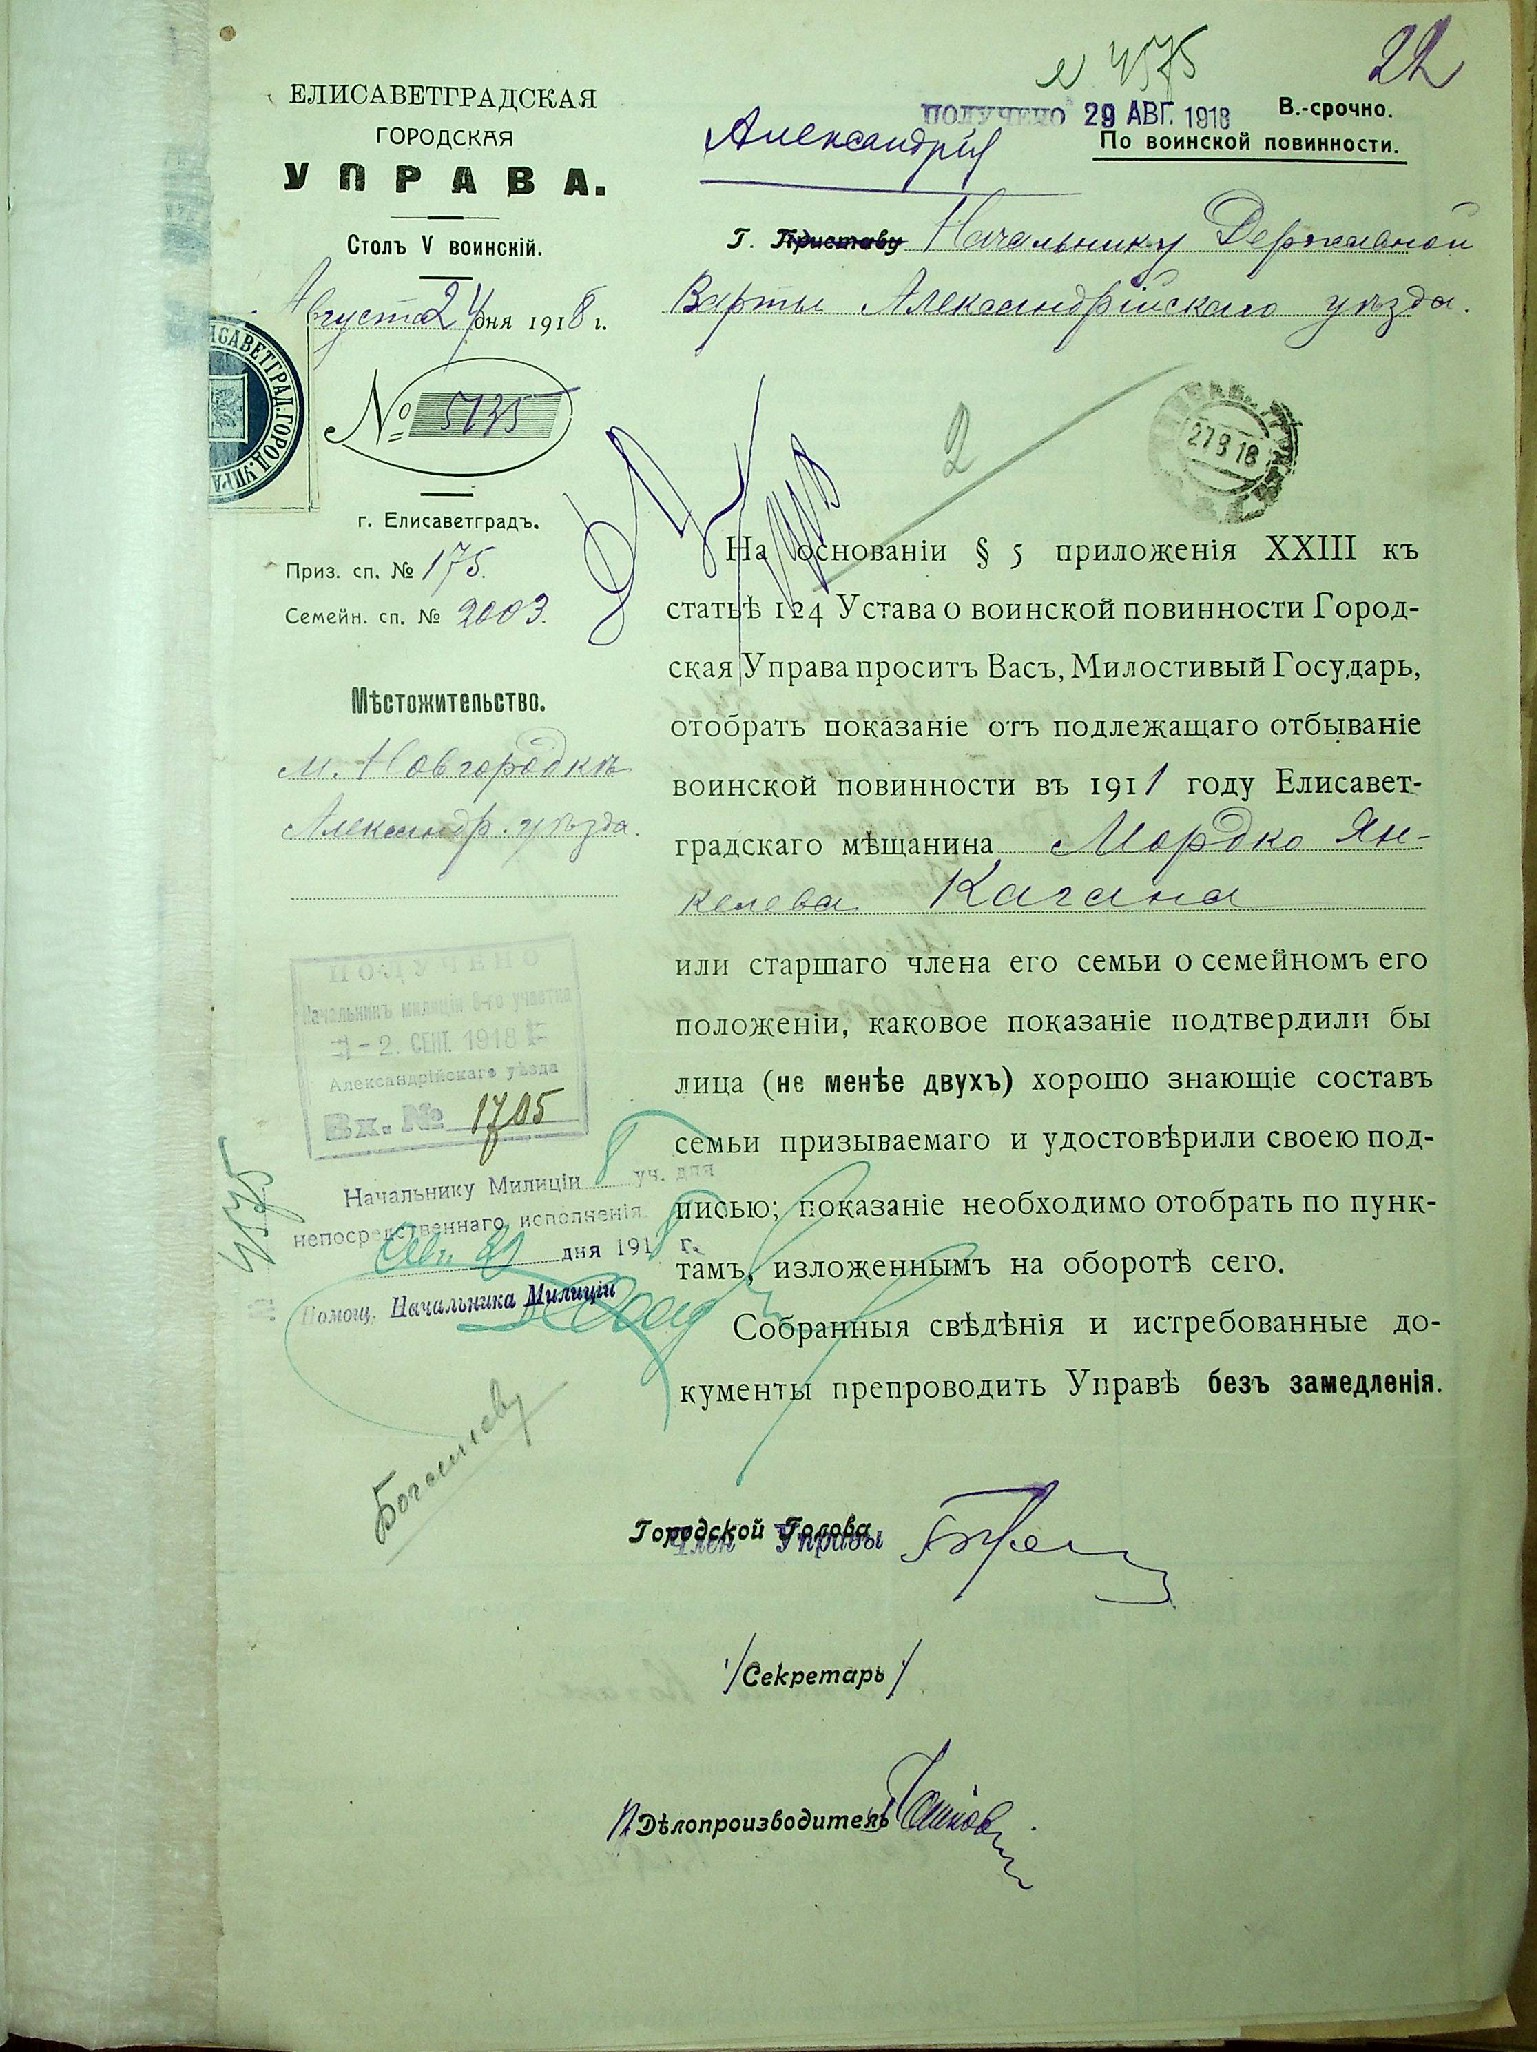 22
№ 4575
ПОЛУЧЕНО 29 АВГ. 1918
В.-срочно.
По воинской повинности.
Александрія
ЕЛИСАВЕТГРАДСКАЯ
ГОРОДСКАЯ
УПРАВА.
Столъ V воинскій.
Августа 24 дня 1918 г.
№ 5735
г. Елисаветградъ.
Приз. сп. № 175.
Семейн. сп. № 2003.
Мѣстожительство.
м. Новгородкѣ
Александр. уѣзда.
Г. Приставу Начальнику Державной
Варты Александрійскаго уѣзда.
2
27 8 18
На основаніи § 5 приложенія XXIII къ
статьѣ 124 Устава о воинской повинности Город-
ская Управа проситъ Васъ, Милостивый Государь,
отобрать показаніе отъ подлежащаго отбыванію
воинской повинности въ 1911 году Елисавет-
градскаго мѣщанина Мордко Ян-
келева Кагана
или старшаго члена его семьи о семейномъ его
положеніи, каковое показаніе подтвердили бы
лица (не менѣе двухъ) хорошо знающіе составъ
семьи призываемаго и удостовѣрили своею под-
писью; показаніе необходимо отобрать по пунк-
тамъ, изложеннымъ на оборотѣ сего.
Собранныя свѣдѣнія и истребованные до-
кументы препроводить Управѣ безъ замедленія.
ПОЛУЧЕНО
Начальникъ милиціи 8-го участка
- 2. СЕНТ. 1918
Александрійскаго уѣзда
Вх. № 1705
4575
Начальнику Милиціи 8 уч. для
непосредственнаго исполненія.
дня 1918 г.
Помощ. Начальника Милиціи
Городской Голова
Член Управы
Секретарь
Дѣлопроизводитель
ЕЛИСАВЕТГРАД. ГОРОД. УПРА